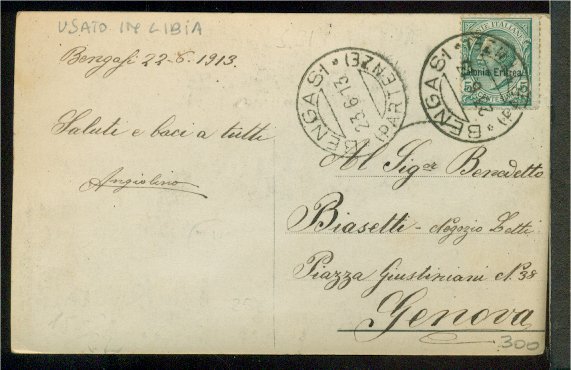 USATO IN LIBIA
Bengasi 22-6. 1913.
Saluti e baci a tutti
Angiolino
BENGASI
23.6.13
(PARTENZE)
POSTE ITALIANE
Colonia Eritrea
BENGASI
Al Sigor Benedetto
Biasetti - Negozio Letti
Piazza Giustiniani N. 38
Genova
300